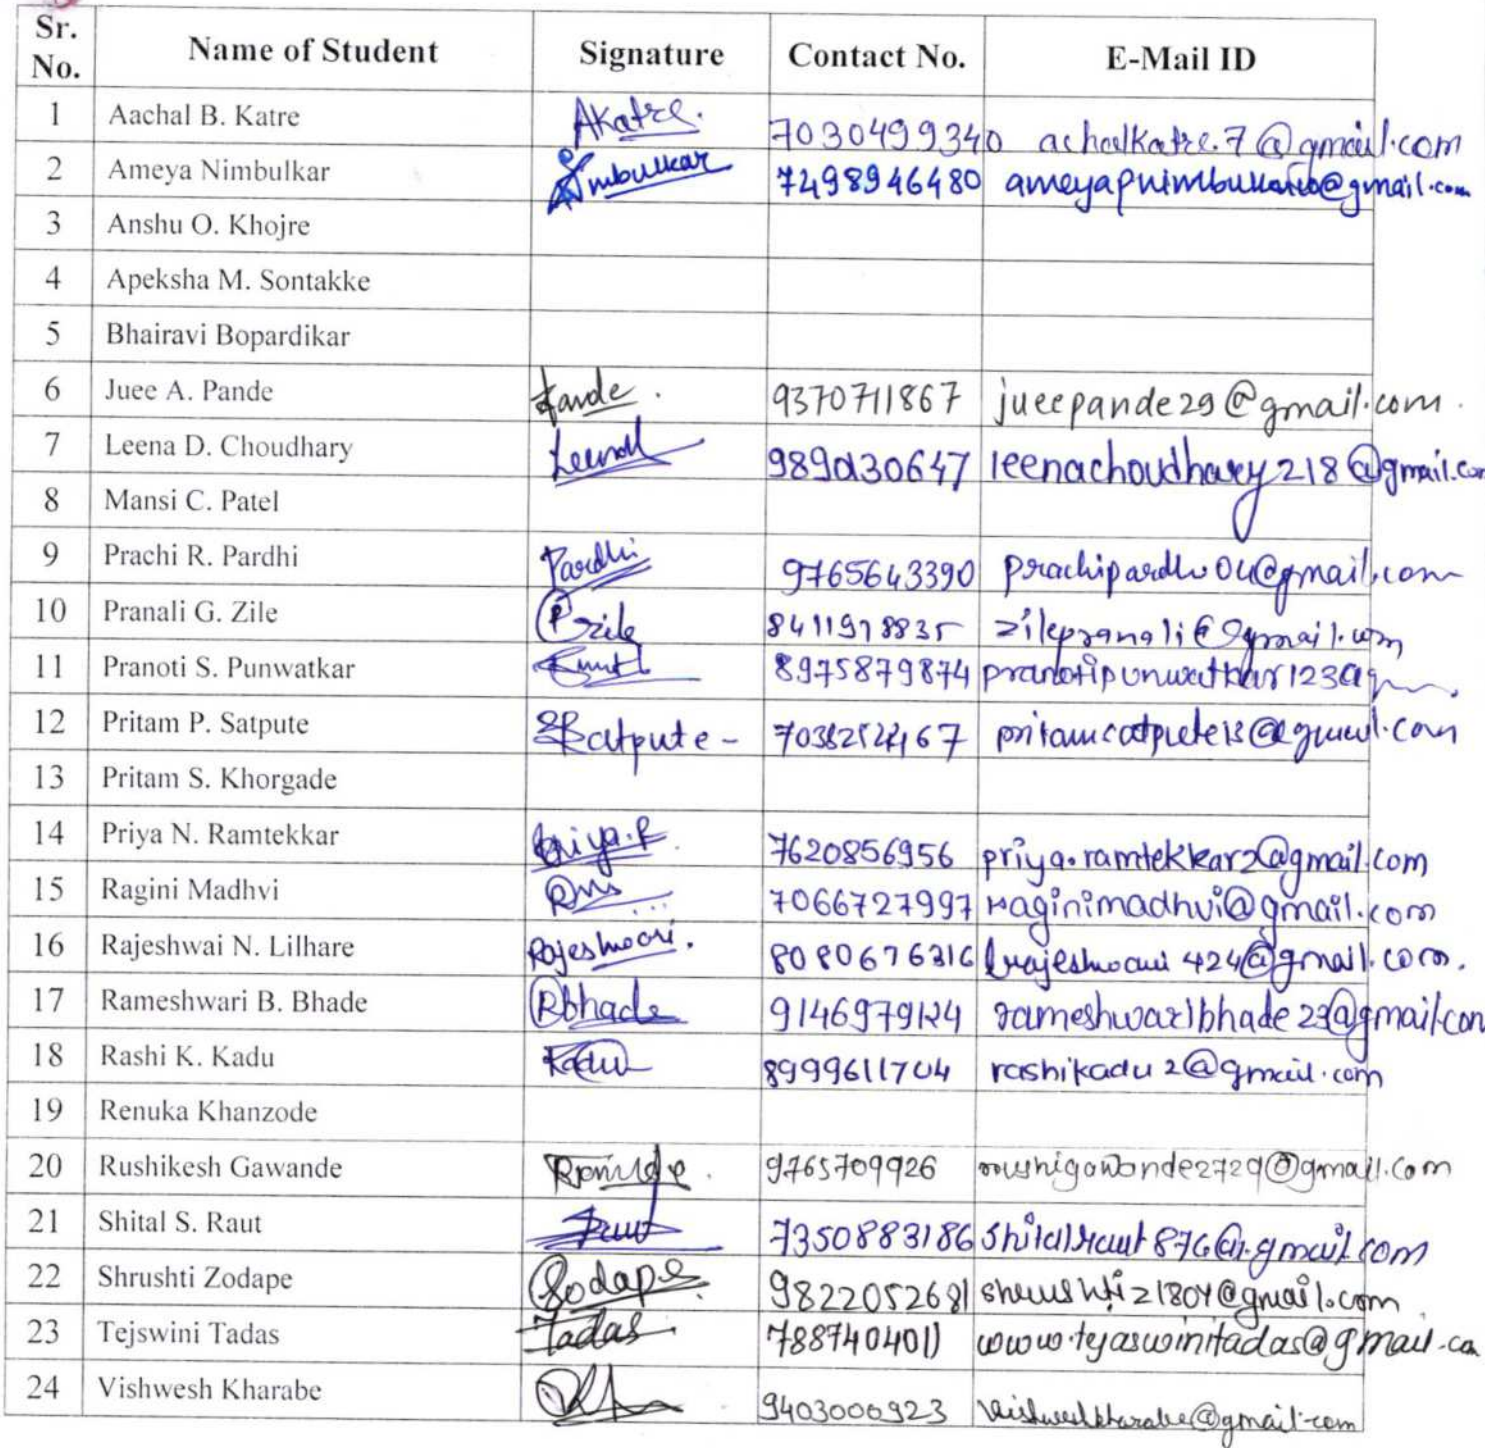 Sr. No. Name of Student Signature Contact No. E-Mail ID
1 Aachal B. Katre AKatre. 7030499340 achalkatre.7@gmail.com
2 Ameya Nimbulkar Nimbulkar 7498946480
3 Anshu O. Khojre
4 Apeksha M. Sontakke
5 Bhairavi Bopardikar
6 Juee A. Pande Pande. 9370711867 jueepande29@gmail.com.
7 Leena D. Choudhary leenachoudhary218@gmail.com
8 Mansi C. Patel
9 Prachi R. Pardhi Pardhi 9765643390
10 Pranali G. Zile PZile 8411918835
11 Pranoti S. Punwatkar 8975879874
12 Pritam P. Satpute Satpute-
13 Pritam S. Khorgade
14 Priya N. Ramtekkar Priya.R 7620856956 priya.ramtekkar2@gmail.com
15 Ragini Madhvi 7066727997 raginimadhvi@gmail.com
16 Rajeshwai N. Lilhare Rajeshwari. 8080676316 lrajeshwari424@gmail.com.
17 Rameshwari B. Bhade RBhade 9146979124 rameshwaribhade23@gmail.com
18 Rashi K. Kadu Kadu 8999611704 rashikadu2@gmail.com
19 Renuka Khanzode
20 Rushikesh Gawande 9765709926 rushigawande2729@gmail.com
21 Shital S. Raut Raut 7350883186
22 Shrushti Zodape Zodape 9822052681
23 Tejswini Tadas Tadas 7887404011 www.tejaswinitadas@gmail.co
24 Vishwesh Kharabe 9403000923 vishweshkharabe@gmail.com